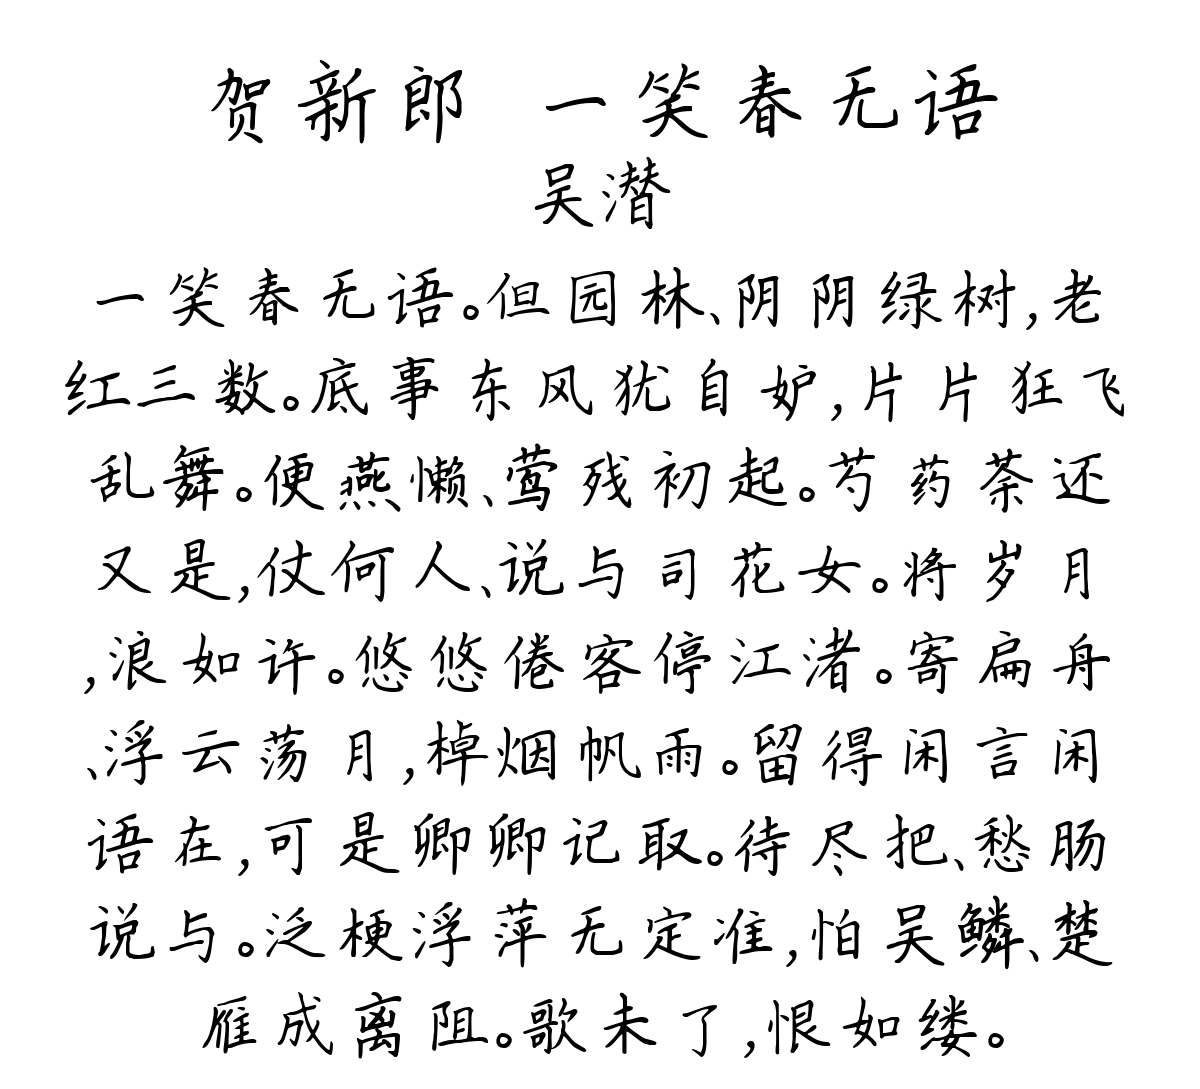 贺新郎 一笑春无语
吴潜
一笑春无语。但园林、阴阴绿树,老
红三数。底事东风犹自妒,片片狂飞
乱舞。便燕懒、莺残初起。芍药荼还
又是,仗何人、说与司花女。将岁月
,浪如许。悠悠倦客停江渚。寄扁舟
、浮云荡月,棹烟帆雨。留得闲言闲
语在,可是卿卿记取。待尽把、愁肠
说与。泛梗浮萍无定准,怕吴鳞、楚
雁成离阻。歌未了,恨如缕。